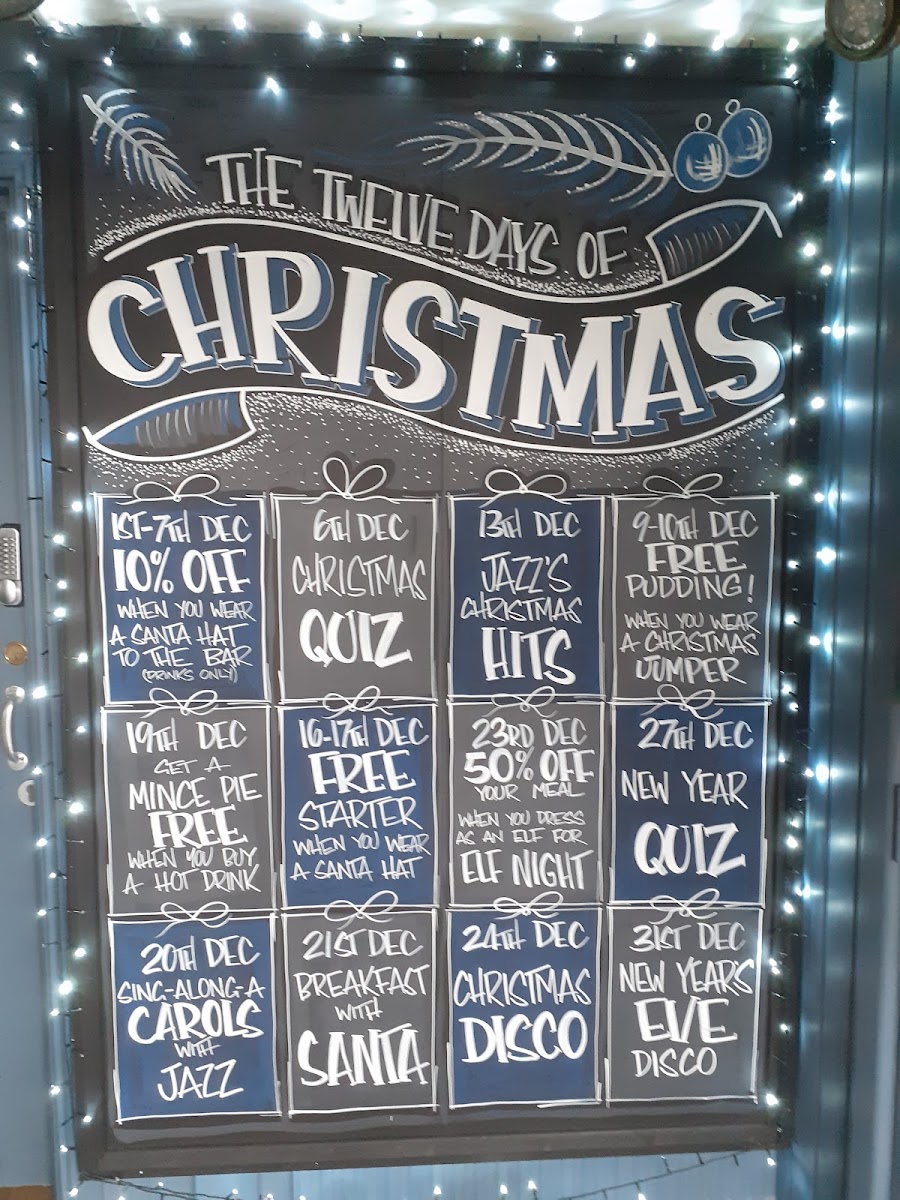 THE TWELVE DAYS OF
CHRISTMAS
1ST-7TH DEC
10% OFF
WHEN YOU WEAR
A SANTA HAT
TO THE BAR
(DRINKS ONLY)
6TH DEC
CHRISTMAS
QUIZ
13TH DEC
JAZZ'S
CHRISTMAS
HITS
9-10TH DEC
FREE
PUDDING!
WHEN YOU WEAR
A CHRISTMAS
JUMPER
19TH DEC
GET A
MINCE PIE
FREE
WHEN YOU BUY
A HOT DRINK
16-17TH DEC
FREE
STARTER
WHEN YOU WEAR
A SANTA HAT
23RD DEC
50% OFF
YOUR MEAL
WHEN YOU DRESS
AS AN ELF FOR
ELF NIGHT
27TH DEC
NEW YEAR
QUIZ
20TH DEC
SING-ALONG-A
CAROLS
WITH
JAZZ
21ST DEC
BREAKFAST
WITH
SANTA
24TH DEC
CHRISTMAS
DISCO
31ST DEC
NEW YEAR'S
EVE
DISCO